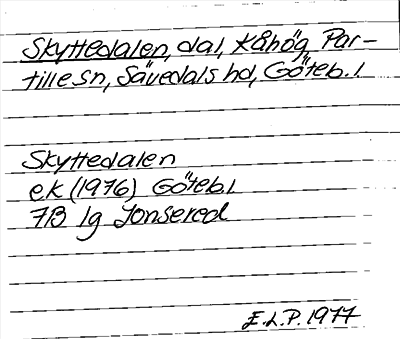 Skyttedalen, dal, Kåhög, Par-
tille sn, Sävedals hd, Göteb. l
Skyttedalen
ek (1976) Göteb. l
7B 1g Jonsered
E.L.P. 1977